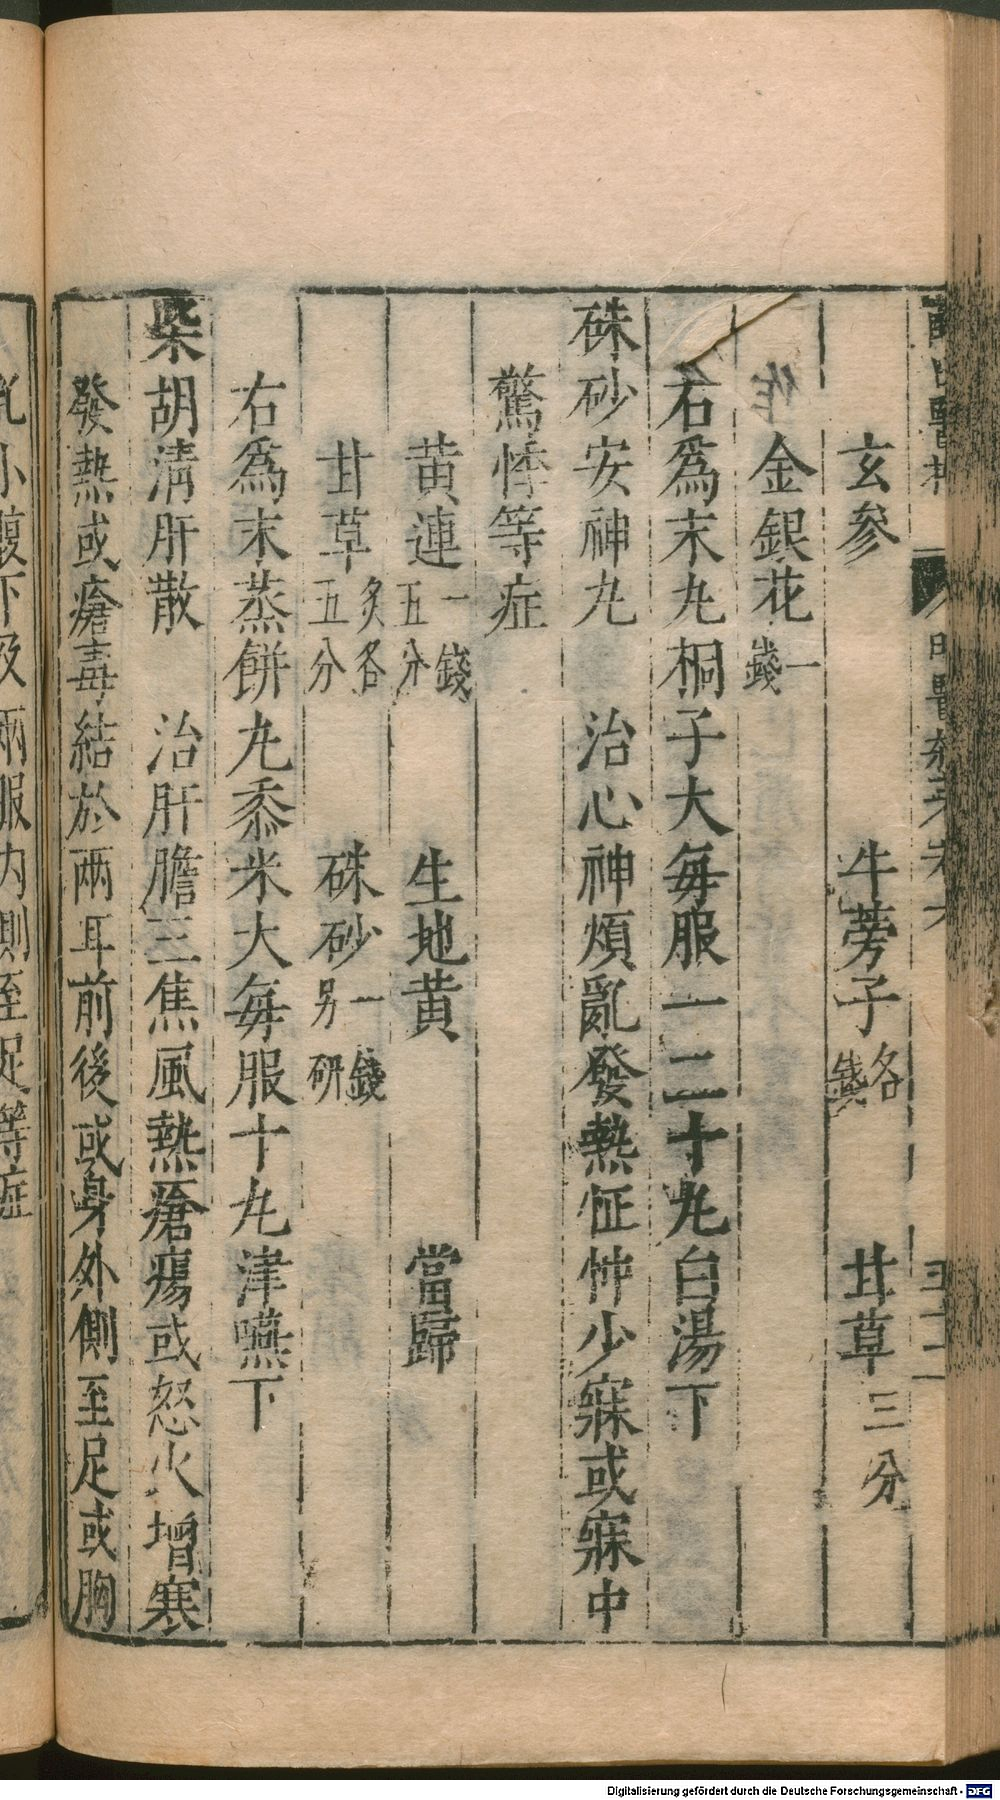 玄參　牛蒡子各錢　甘草三分
金銀花一錢
右爲末丸桐子大每服一二十丸白湯下
硃砂安神丸　治心神煩亂發熱怔忡少寐或寐中
驚悸等症
黄連一錢五分　生地黄　當歸
甘草炙各五分　硃砂一錢另研
右爲末蒸餅丸黍米大每服十丸津嚥下
柴胡淸肝散　治肝膽三焦風熱瘡瘍或怒火增寒
發熱或瘡毒結於兩耳前後或身外側至足或胸
乳小腹下及兩股内側至足等症
Digitalisierung gefördert durch die Deutsche Forschungsgemeinschaft - DFG